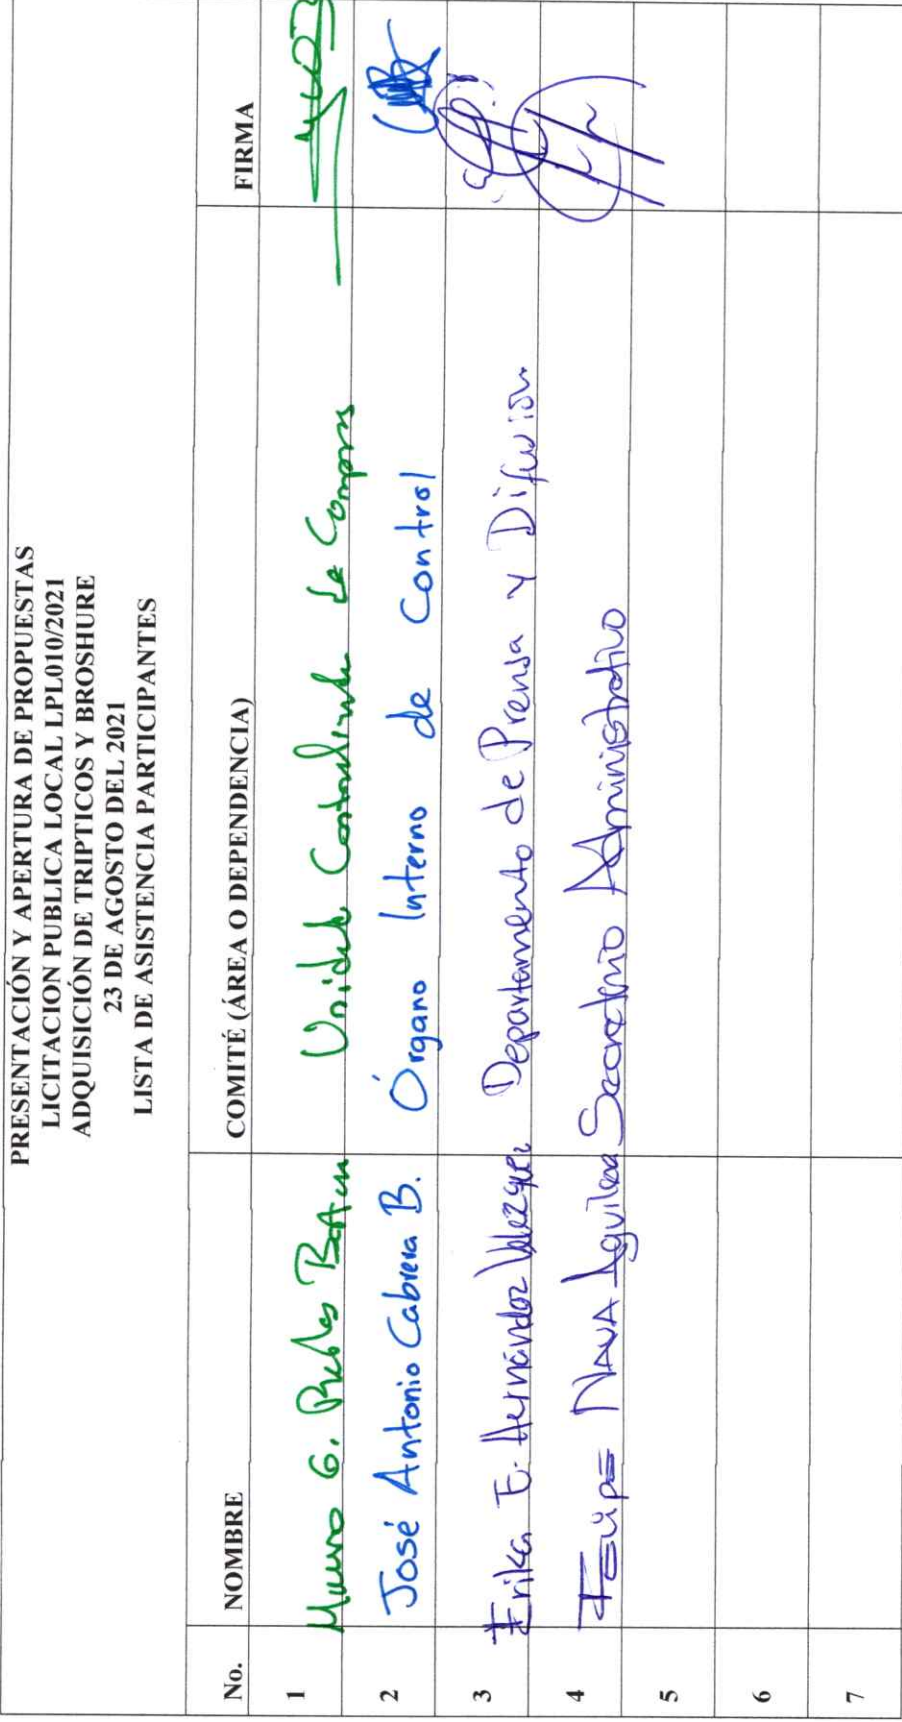 PRESENTACIÓN Y APERTURA DE PROPUESTAS
LICITACION PUBLICA LOCAL LPL010/2021
ADQUISICIÓN DE TRIPTICOS Y BROSHURE
23 DE AGOSTO DEL 2021
LISTA DE ASISTENCIA PARTICIPANTES
No. NOMBRE COMITÉ (ÁREA O DEPENDENCIA) FIRMA
1 G. Unidad de Compras
2 José Antonio Cabrera B. Órgano Interno de Control
3 Erika E. Hernández Velázquez Departamento de Prensa y Difusión
4 Felipe NAVA Aguilera Secretario Administrativo
5
6
7